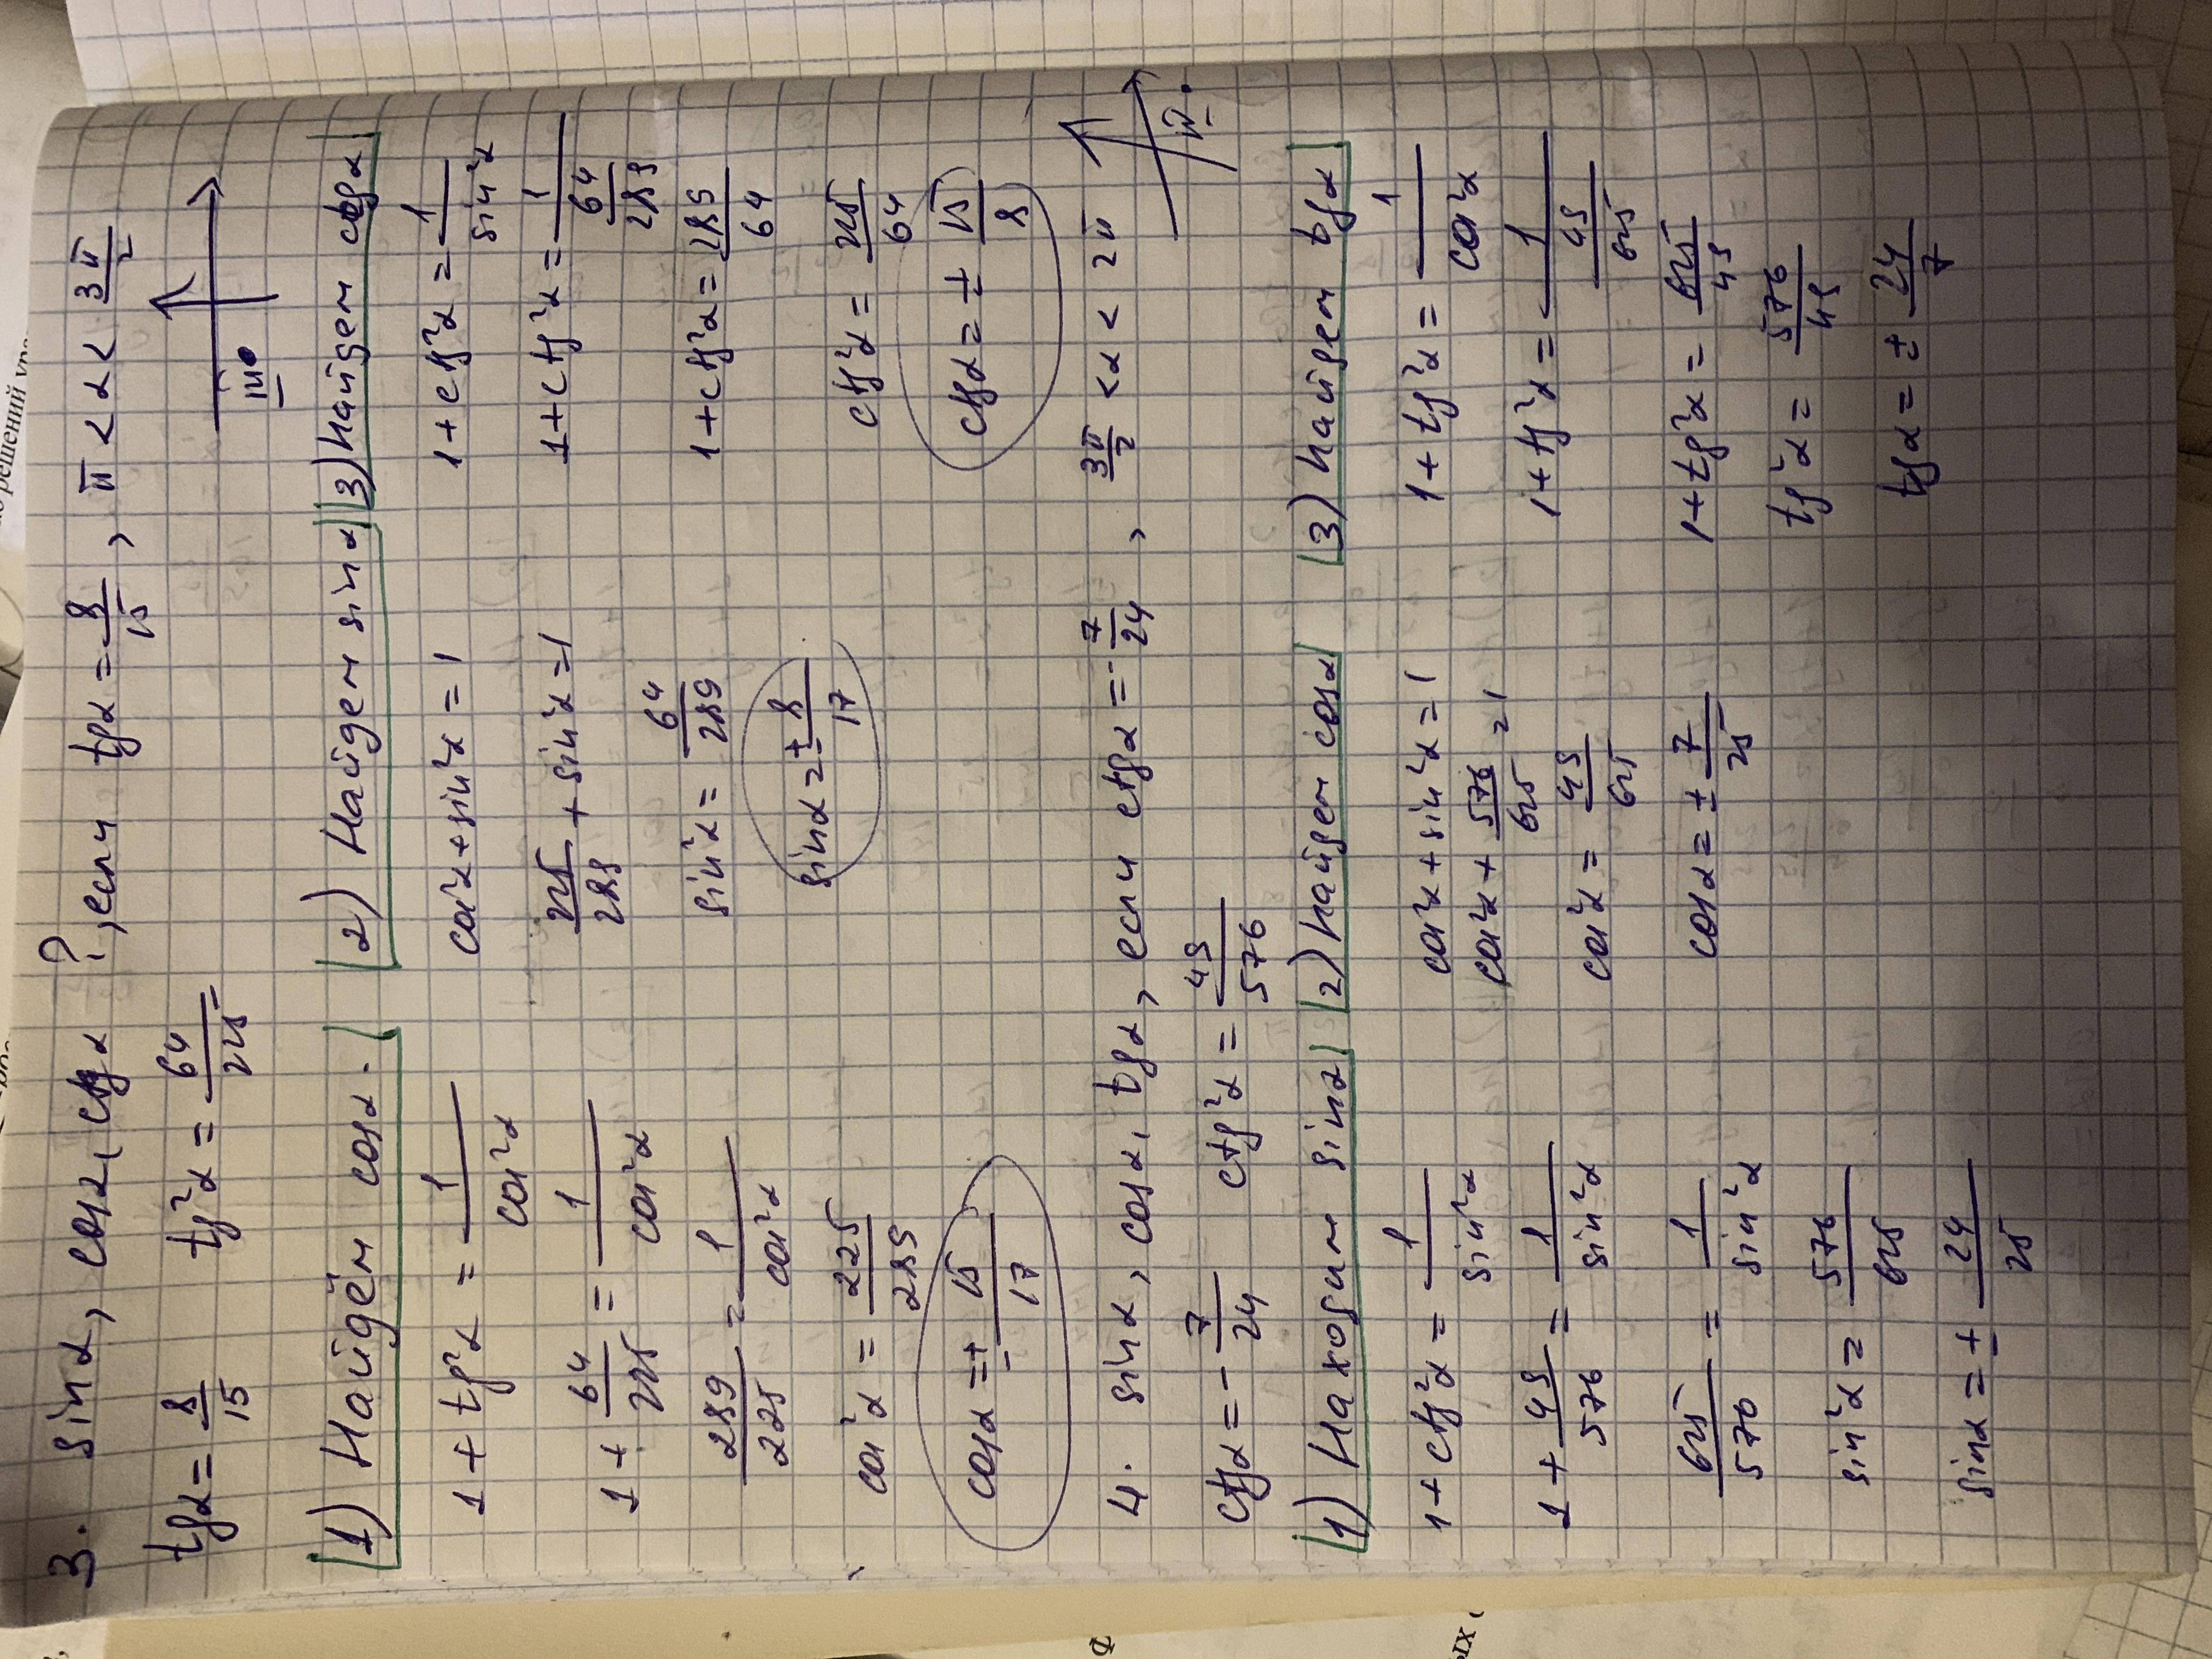 3. sinα, cosα, ctgα ?, если tgα = 8/15, π < α < 3π/2
tgα = 8/15 tg²α = 64/225
III
1) Найдём cosα.
1 + tg²α = 1/cos²α
1 + 64/225 = 1/cos²α
289/225 = 1/cos²α
cos²α = 225/289
cosα = ± 15/17
2) Найдем sinα
cos²α + sin²α = 1
225/289 + sin²α = 1
sin²α = 64/289
sinα = ± 8/17
3) Найдем ctgα
1 + ctg²α = 1/sin²α
1 + ctg²α = 1/(64/289)
1 + ctg²α = 289/64
ctg²α = 225/64
ctgα = ± 15/8
4. sinα, cosα, tgα, если ctgα = - 7/24, 3π/2 < α < 2π
ctgα = - 7/24 ctg²α = 49/576
IV
1) Находим sinα
1 + ctg²α = 1/sin²α
1 + 49/576 = 1/sin²α
625/576 = 1/sin²α
sin²α = 576/625
sinα = ± 24/25
2) Найдем cosα
cos²α + sin²α = 1
cos²α + 576/625 = 1
cos²α = 49/625
cosα = ± 7/25
3) Найдем tgα
1 + tg²α = 1/cos²α
1 + tg²α = 1/(49/625)
1 + tg²α = 625/49
tg²α = 576/49
tgα = ± 24/7
решений